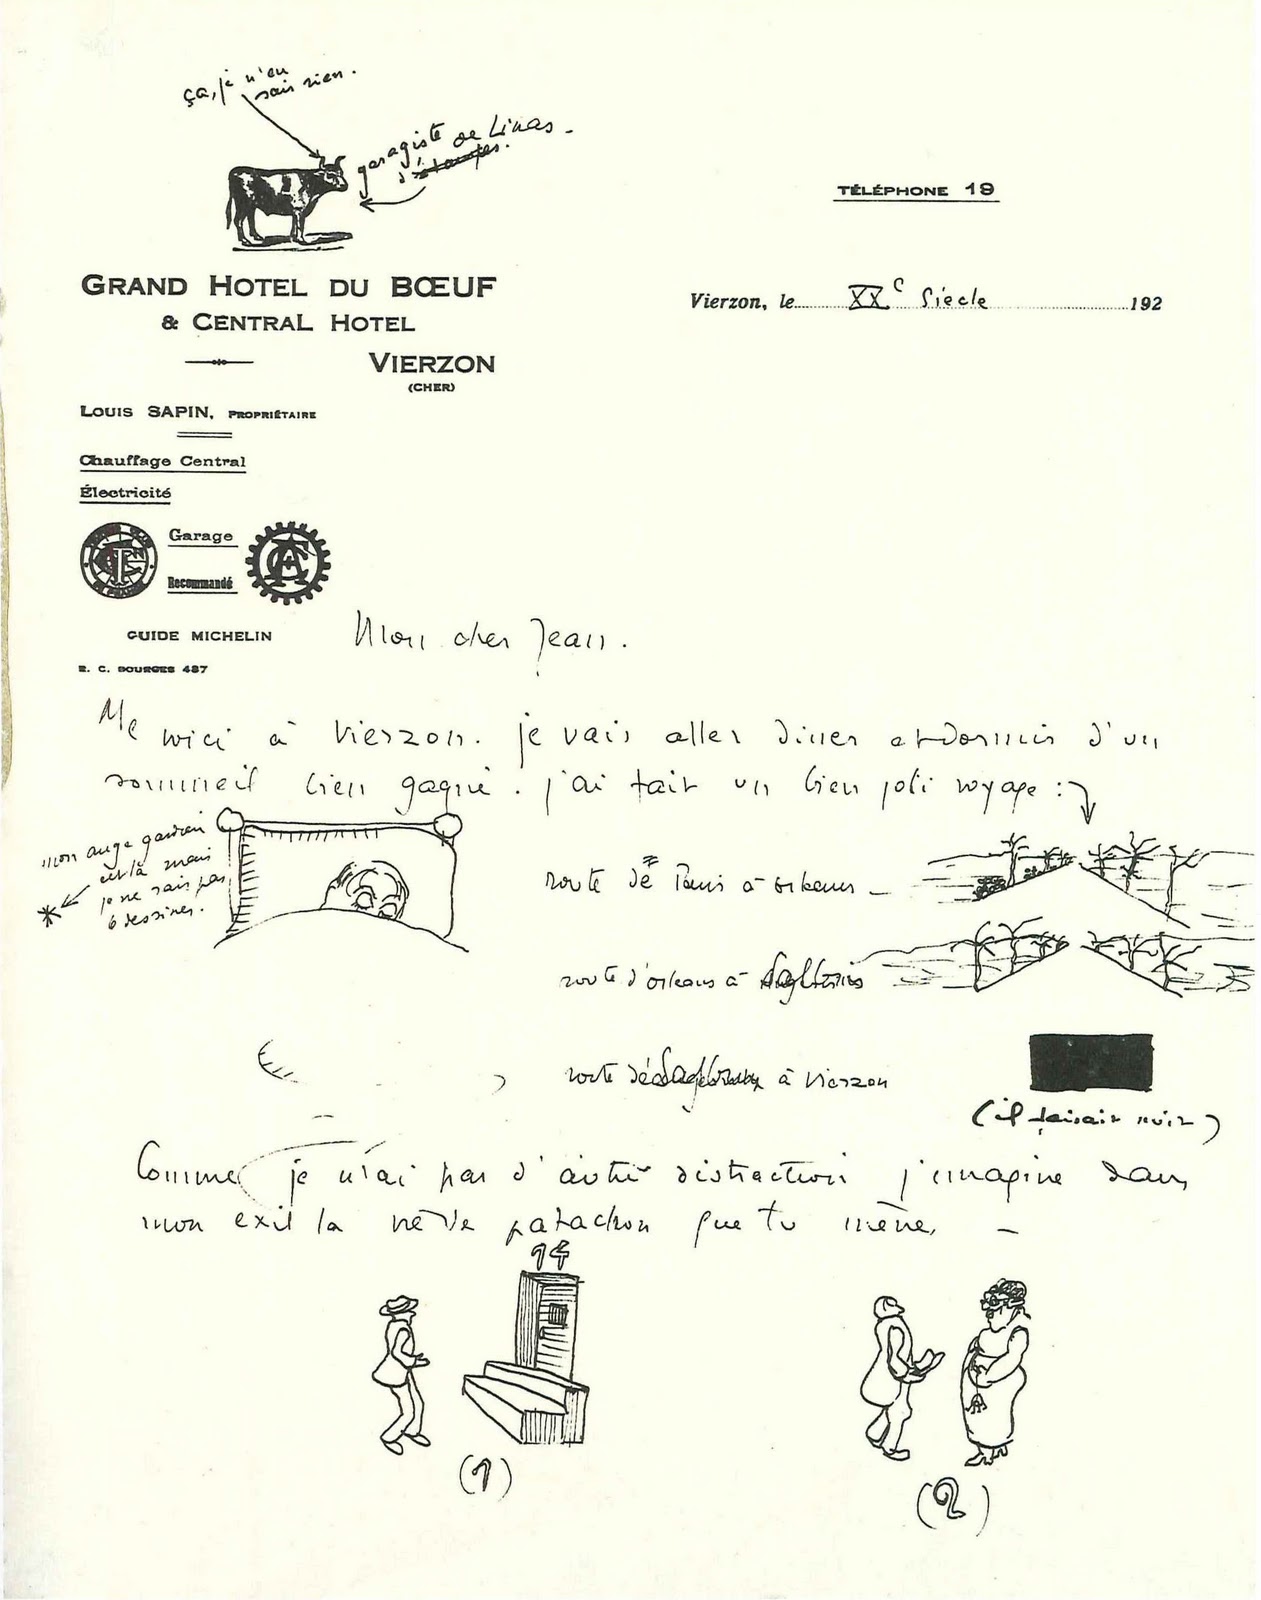 ça, je n'en
sais rien.
garagiste de Linas -
d'étampes.
TÉLÉPHONE 19
GRAND HOTEL DU BŒUF
& CENTRAL HOTEL
VIERZON
(CHER)
Vierzon, le XXe Siècle 192
LOUIS SAPIN, PROPRIÉTAIRE
Chauffage Central
Électricité
Garage
Recommandé
GUIDE MICHELIN
R. C. BOURGES 487
Mon cher Jean.
Me voici à Vierzon. je vais aller diner et dormir d'un
sommeil bien gagné. j'ai fait un bien joli voyage :
mon ange gardien
est là mais
je ne sais pas
le dessiner.
route de Paris à orleans -
route d'orleans à
route de à Vierzon
(il faisait nuit)
Comme je n'ai pas d'autre distraction j'imagine dans
mon exil la vie de patachon que tu mène. -
14
(1)
(2)